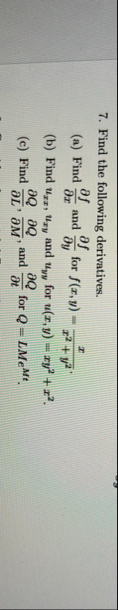 7. Find the following derivatives.
(a) Find ∂f/∂x and ∂f/∂y for f(x, y) = x/(x² + y²).
(b) Find uₓₓ, uₓᵧ and uᵧᵧ for u(x, y) = xy² + x².
(c) Find ∂Q/∂L, ∂Q/∂M, and ∂Q/∂t for Q = LMe^{Mt}.